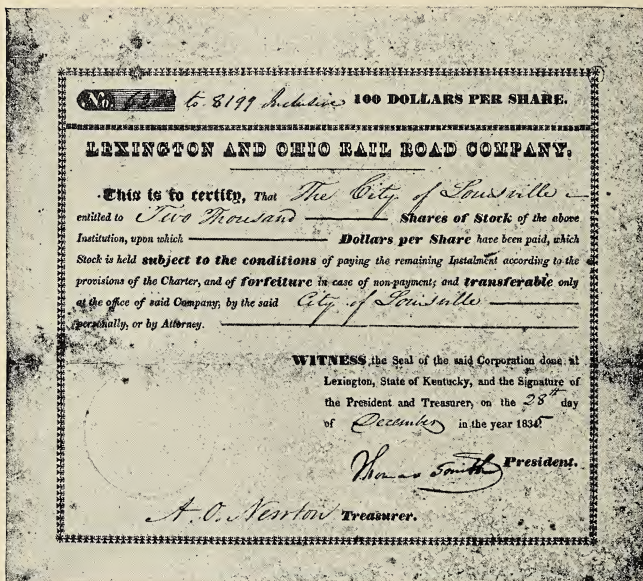 No. to 8199 Inclusive 100 DOLLARS PER SHARE.
LEXINGTON AND OHIO RAIL ROAD COMPANY.
This is to certify, That The City of Louisville
entitled to Two Thousand Shares of Stock of the above
Institution, upon which Dollars per Share have been paid, which
Stock is held subject to the conditions of paying the remaining Instalment according to the
provisions of the Charter, and of forfeiture in case of non-payment; and transferable only
at the office of said Company, by the said City of Louisville
personally, or by Attorney.
WITNESS the Seal of the said Corporation done at
Lexington, State of Kentucky, and the Signature of
the President and Treasurer, on the 28th day
of December in the year 1835
Thomas Smith President.
A. O. Newton Treasurer.